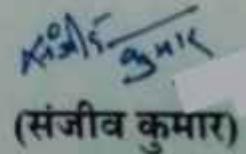 संजीव कुमार
(संजीव कुमार)